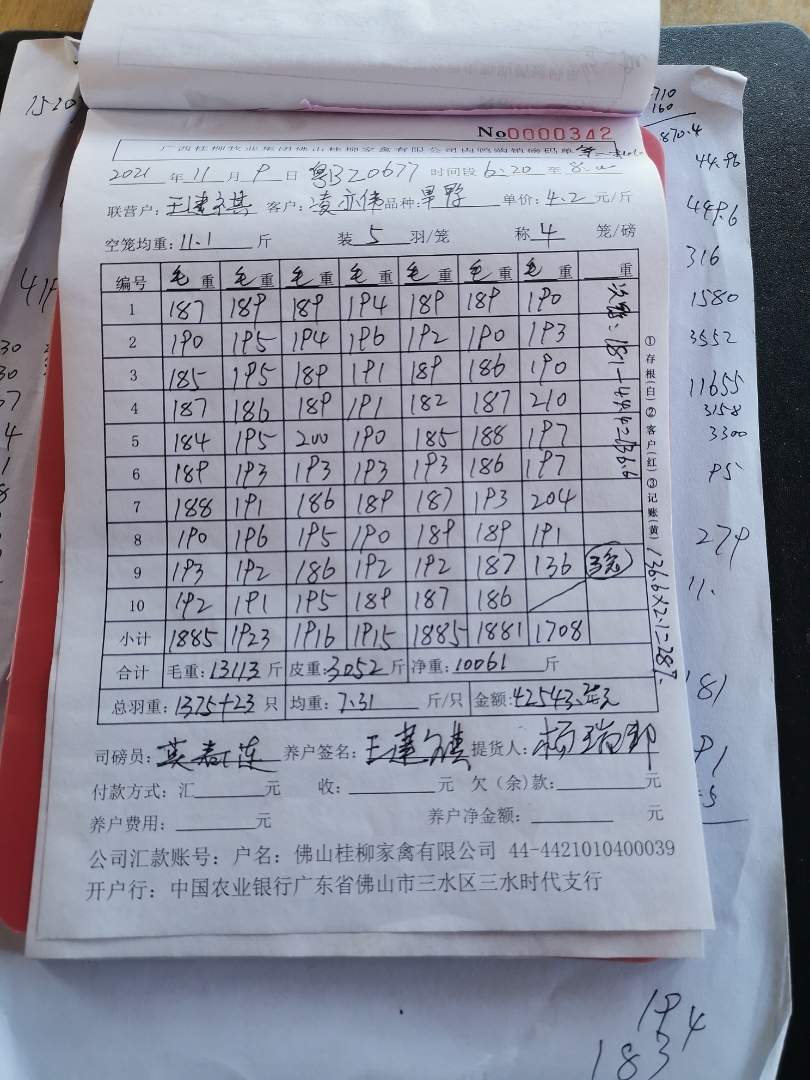 No0000342
2021 年 11 月 9 日 粤BZ0677 时间段 6:20 至
联营户: 客户: 凌亦伟 品种: 旱鸭 单价: 4.2 元/斤
空笼均重: 11.1 斤 装 5 羽/笼 称 4 笼/磅
编号 毛重 毛重 毛重 毛重 毛重 毛重 毛重 重
1 187 189 189 194 189 189 190
2 190 195 194 196 192 190 193
3 185 195 189 191 189 186 190
4 187 186 189 191 182 187 210
5 184 195 200 190 185 188 197
6 189 193 193 193 193 186 197
7 188 191 186 189 187 193 204
8 190 196 195 190 189 189 191
9 193 192 186 192 192 187 136 3笼
10 192 191 195 189 187 186
小计 1885 1923 1916 1915 1885 1881 1708
合计 毛重: 13113 斤 皮重: 3052 斤 净重: 10061 斤
总羽重: 1375+23 只 均重: 7.31 斤/只 金额: 42543.
司磅员: 养户签名: 提货人:
付款方式: 汇 元 收: 元 欠(余)款: 元
养户费用: 元 养户净金额: 元
公司汇款账号: 户名: 佛山桂柳家禽有限公司 44-4421010400039
开户行: 中国农业银行广东省佛山市三水区三水时代支行
①存根(白)②客户(红)③记账(黄)
181-44.4=136.6
136.6×2.1=287.
1520
710
160
870.4
44.96
449.6
316
1580
3552
11655
3158
3300
95
279
11.
81
91
194
183